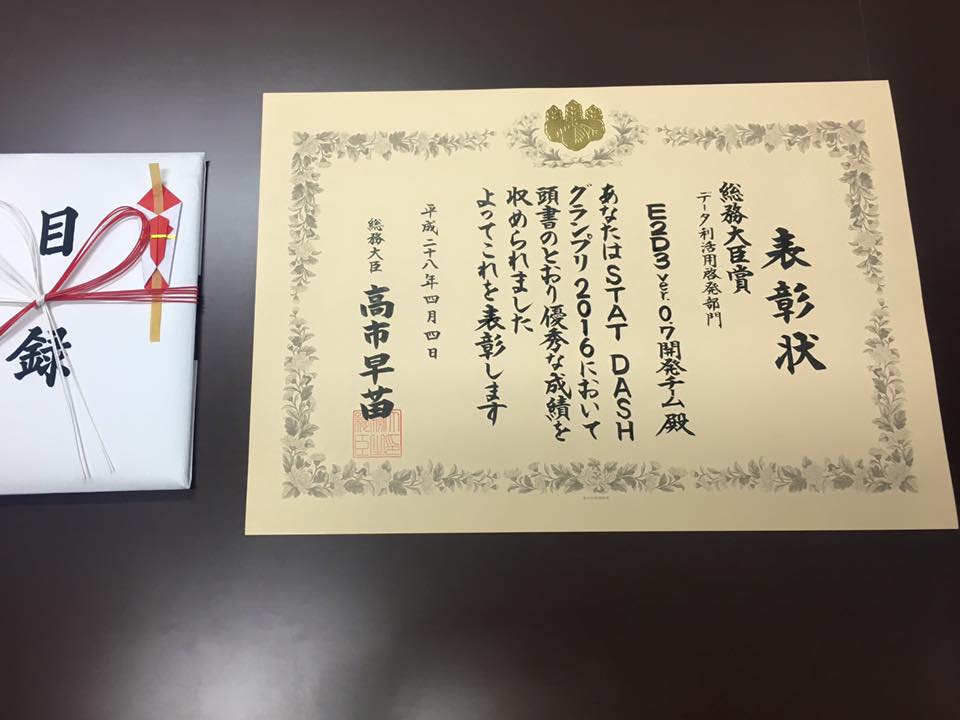 表彰状
総務大臣賞
データ利活用啓発部門
E2D3 ver.07開発チーム 殿
あなたはSTAT DASH
グランプリ2016において
頭書のとおり優秀な成績を
収められました
よってこれを表彰します
平成二十八年四月四日
総務大臣 高市早苗
目録